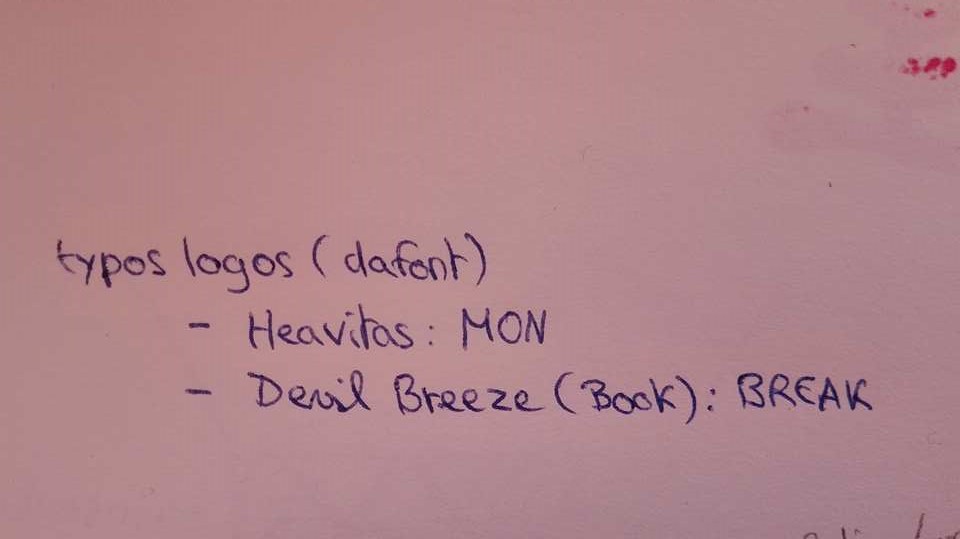 typos logos (dafont)
- Heavitas: MON
- Devil Breeze (Book): BREAK